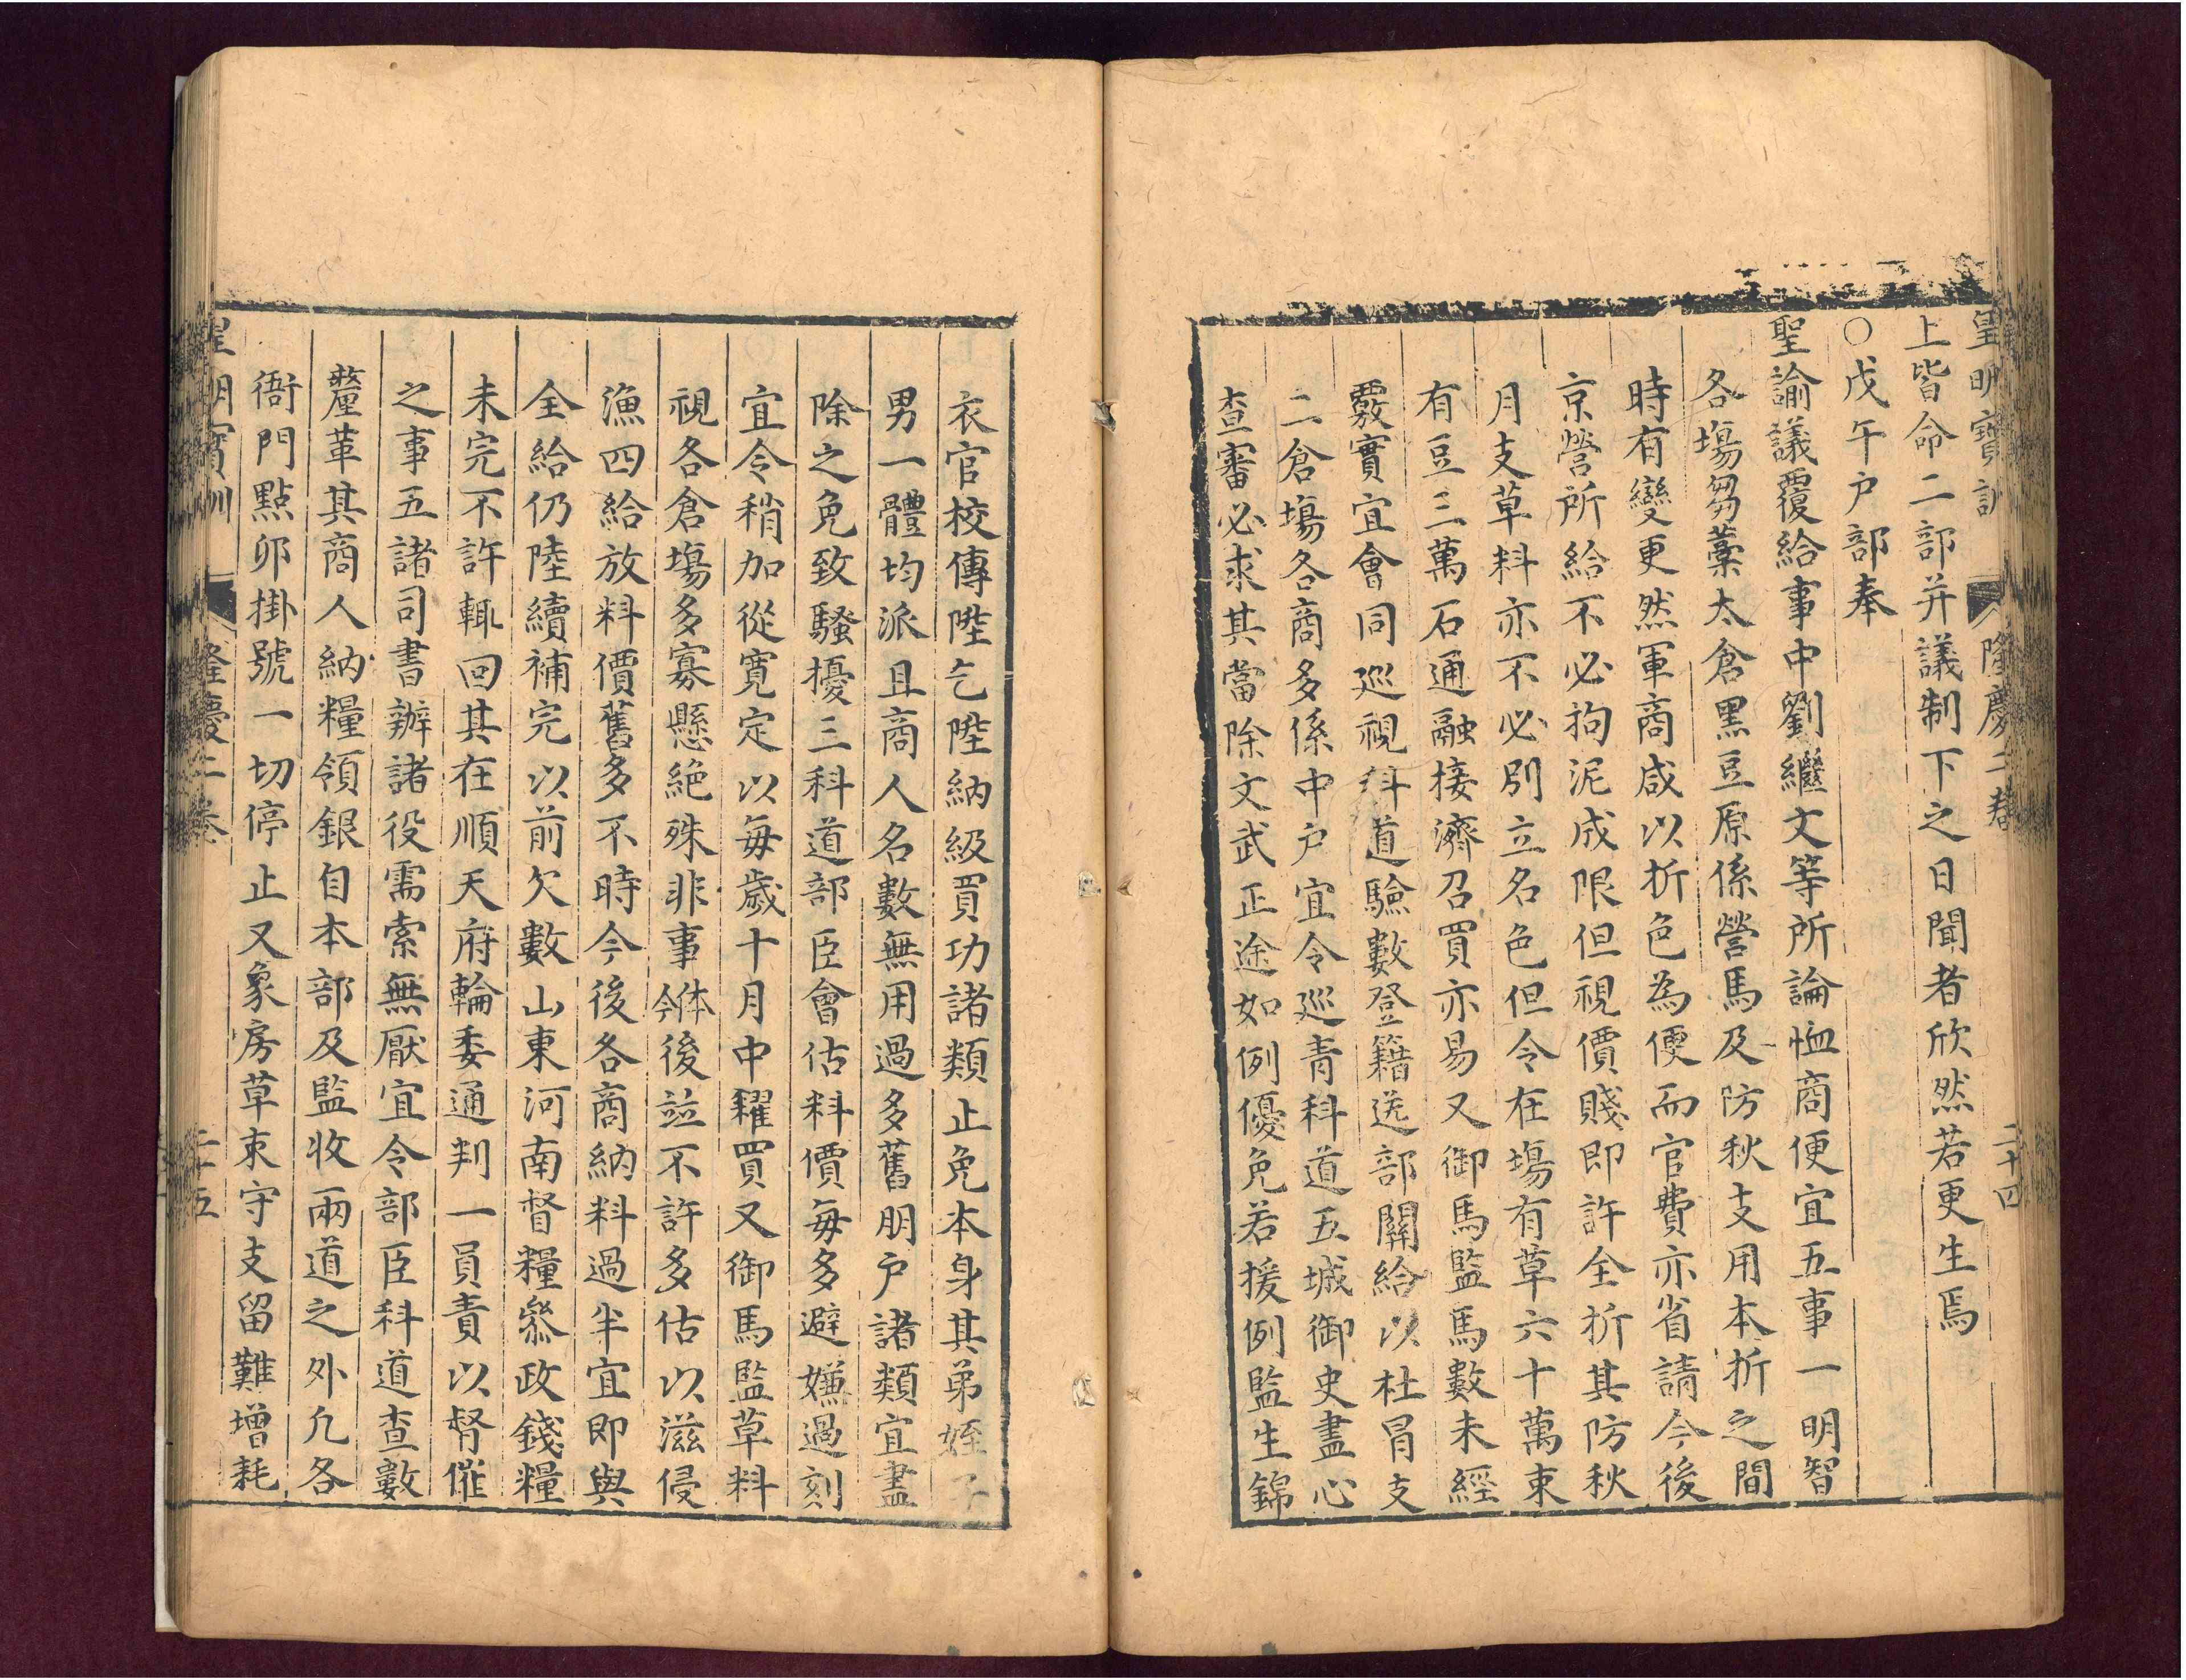 皇明寶訓 隆慶二卷 二十四
上皆命二部并議制下之日聞者欣然若更生焉
○戊午户部奉
聖諭議覆給事中劉繼文等所論恤商便宜五事一明智
各塲芻藁太倉黑豆原係營馬及防秋支用本折之間
時有變更然軍商咸以折色為便而官費亦省請今後
京營所給不必拘泥成限但視價賤即許全折其防秋
月支草料亦不必別立名色但令在塲有草六十萬束
有豆三萬石通融接濟召買亦易又御馬監馬數未經
覈實宜會同巡視科道驗數登籍送部關給以杜冒支
二倉塲各商多係中户宜令巡青科道五城御史盡心
查審必求其當除文武正途如例優免若援例監生錦
衣官校傳陞乞陞納級買功諸類止免本身其弟姪子
男一體均派且商人名數無用過多舊朋户諸類宜盡
除之免致騷擾三科道部臣會估料價每多避嫌過刻
宜令稍加從寬定以每歲十月中糴買又御馬監草料
視各倉塲多寡懸絶殊非事体今後並不許多估以滋侵
漁四給放料價舊多不時今後各商納料過半宜即與
全給仍陸續補完以前欠數山東河南督糧叅政錢糧
未完不許輒回其在順天府輪委通判一員責以督催
之事五諸司書辦諸役需索無厭宜令部臣科道查數
釐革其商人納糧領銀自本部及監收兩道之外凢各
衙門點卯掛號一切停止又象房草束守支留難增耗
皇明寶訓 隆慶二卷 二十五